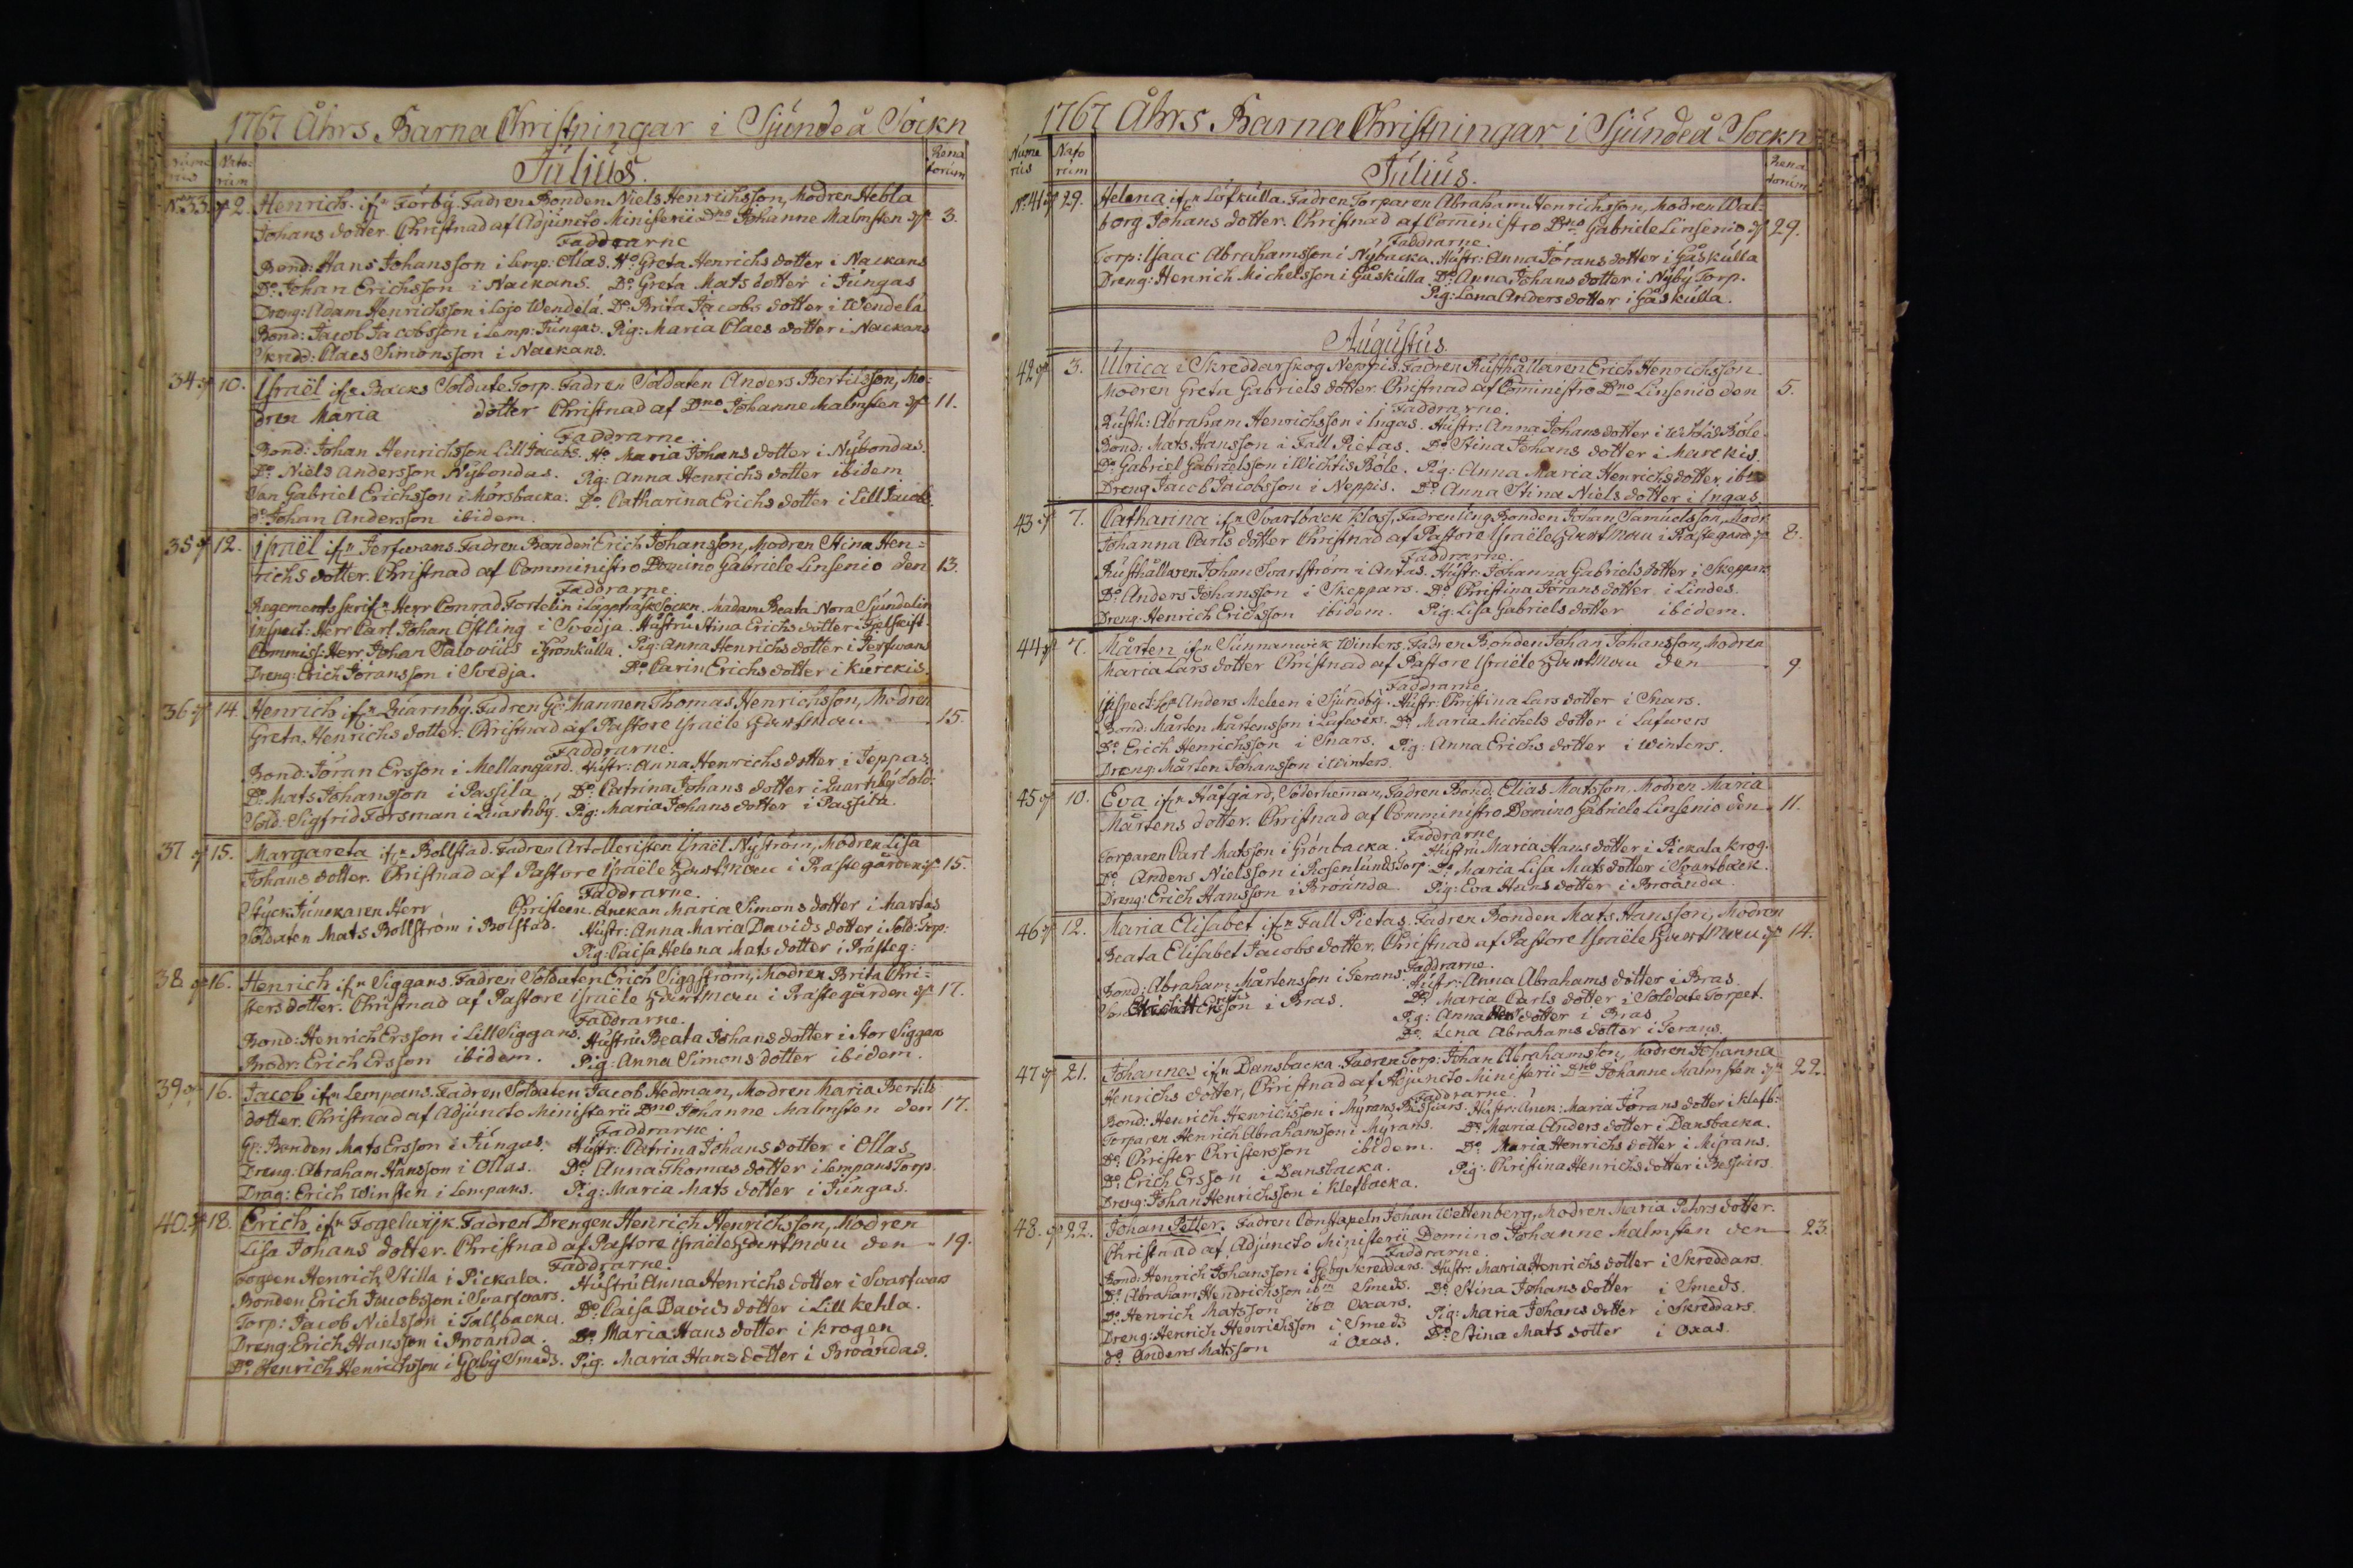 1767 Åhrs Barna Christningar i Sjundeå Sockn
Nume rus Nato: rum Julius. Rena torum
N. 33. 2. Henrich. ifr. Törby. Fadren Bonden Niels Henrichsson, Modren Hebla
Johans dotter. Christnad af Adjuncto Ministerii Dno Johanne Malmsten 3.
Faddrarne
Bond: Hans Johansson i Lemp: Ollas. Ho. Greta Henrichs dotter i Nackans
Do. Johan Erichsson i Nackans. Do. Greta Mats dotter i Jungas
Dreng: Adam Henrichsson i Lojo Wendela. Do. Brita Jacobs dotter i Wendela
Bond: Jacob Jacobsson i Lemp: Jungas. Pig: Maria Claes dotter i Nackans
Skrädd: Claes Simonsson i Nackans.
34 10. Israël ifr. Backs Soldate Torp. Fadren Soldaten Anders Bertilsson, Mo=
dren Maria dotter Christnad af Dno Johanne Malmsten 11.
Faddrarne
Bond: Johan Henrichsson Lill Jacobs. Ho. Maria Johans dotter i Nybondas.
Do. Niels Andersson Nybondas. Pig: Anna Henrichs dotter ibidem
Gabriel Erichsson i Morsbacka. Do. Catharina Erichs dotter i Lill Jacobs.
do. Johan Andersson ibidem.
35 12. Israël ifr. Jerfwans. Fadren Bonden Erich Johansson, Modren Stina Hen=
richs dotter. Christnad af Comministro Domino Gabriele Linsenio den 13.
Faddrarne.
Regements skrifr. Herr Conrad Fortelin i Lappträsk Sockn. Madam Beata Nora Sjundelin
Inspect: Herr Carl Johan Ostling i Svedja. Hustru Stina Erichs dotter
Commiss: Herr Johan Salovius i Grönkulla. Pig: Anna Henrichs dotter i Jerfwans
Dreng: Erich Joransson i Svedja. Do. Carin Erichs dotter i Kurckis.
36 14. Henrich ifr. Quarnby. Fadren Thomas Henrichsson, Modren
Greta Henrichs dotter. Christnad af Pastore Israële 15.
Faddrarne.
Bond: Joran Ersson i Mellangård. Hustr: Anna Henrichs dotter i Jeppas
Do. Mats Johansson i Passila. Do. Catrina Johans dotter i Quarnby Sold:
Sold: Sigfrid Forsman i Quarnby. Pig: Maria Johans dotter i Passila.
37 15. Margareta ifr. Bollstad. Fadren Artolleristen Israël Nyström, Modren Lisa
Johans dotter. Christnad af Pastore Israële i Prästegården 15.
Faddrarne.
Styck Junckaren Herr Christeen. Anckan Maria Simons dotter i Martas
Soldaten Mats Bollström i Bolstad. Hustr: Anna Maria Davids dotter i Sold: Torp:
Pig: Caisa Helena Mats dotter i Prästeg:
38 16. Henrich ifr. Siggans. Fadren Soldaten Erich Siggström, Modren Brita Chri=
sters dotter. Christnad af Pastore Israële i Prästegården 17.
Faddrarne.
Bond: Henrich Ersson i Lill Siggans. Hustru Beata Johans dotter i Stor Siggans
Brodr: Erich Ersson ibidem. Pig: Anna Simons dotter ibidem.
39 16. Jacob ifr. Lempans. Fadren Soldaten Jacob Hedman, Modren Maria Bertils
dotter. Christnad af Adjuncto Ministerii Dno Johanne Malmsten den 17.
Faddrarne.
Gr: Bonden Mats Ersson i Jungas. Hustr: Catrina Johans dotter i Ollas
Dreng: Abraham Hansson i Ollas. Do. Anna Thomas dotter i Lempans Torp
Drag: Erich Winsten i Lempans. Pig: Maria Mats dotter i Jungas.
40. 18. Erich ifr. Fogelwijk. Fadren Drengen Henrich Henrichsson, Modren
Lisa Johans dotter. Christnad af Pastore Israële den 19.
Faddrarne.
Fogden Henrich Stilla i Pickala. Hustru Anna Henrichs dotter i Svartwars
Bonden Erich Jacobsson i Svartwars. Do. Caisa Davids dotter i Lill Kehla.
Torp: Jacob Nielsson i Tallbacka. Do. Maria Hans dotter i Krogen
Dreng: Erich Hansson i Broända. Pig. Maria Hans dotter i Broändas.
Do. Henrich Henrichsson i Gäby Smeds.
1767 Åhrs Barna Christningar i Sjundeå Sockn
Nume rus Nato rum Julius. Rena torum
N. 41 29. Helena ifr. Löfkulla. Fadren Torparen Abraham Henrichsson, Modren Wal=
borg Johans dotter. Christnad af Comministro Dno Gabriele Linsenio 29.
Faddrarne.
Torp: Isaac Abrahamsson i Nybacka. Hustr: Anna Jorans dotter i Gåskulla
Dreng: Henrich Michelsson i Gåskulla. Do. Anna Johans dotter i Nyby Torp.
Pig: Lena Anders dotter i Gåskulla.
Augustus
42 3. Ulrica i Skreddarskog Neppis. Fadren Rusthållaren Erich Henrichsson.
Modren Greta Gabriels dotter. Christnad af Comministro Dno Linsenio den 5.
Faddrarne.
Rusth: Abraham Henrichsson i Ingas. Hustr: Anna Johans dotter i Böle
Bond: Mats Hansson i Fall Pietas. Do Stina Johans dotter i Marckis.
Do. Gabriel Gabrielsson i Wichtis Böle. Pig: Anna Maria Henrichs dotter ibm
Dreng Jacob Jacobsson i Neppis. Do. Anna Stina Niels dotter i Ingas
43 7. Catharina ifr. Svartbäck Klass. Fadren Ung Bonden Johan Samuelsson, Modr.
Johanna Carls dotter Christnad af Pastore Israële i Prästegård 8.
Faddrarne.
Rusthållaren Johan Svartström i Antas. Hustr: Johanna Gabriels dotter i Skeppars
Do. Anders Johansson i Skeppars. Do. Christina Jorans dotter i Lindes.
Dreng: Henrich Erichsson ibidem. Pig: Lisa Gabriels dotter ibidem.
44 7. Mårten ifr. Sunnanwik Winters. Fadren Bonden Johan Johansson, Modren
Maria Lars dotter Christnad af Pastore Israële den 9
Faddrarne
Inspect: Hr Anders Meleen i Sjundby. Hustr: Christina Lars dotter i Snars.
Bond: Mårten Mårtensson i Lafwers. Do. Maria Michels dotter i Lafwers
Do. Erich Henrichsson i Snars. Pig: Anna Erichs dotter i Winters.
Dreng: Mårten Johansson i Winters.
45 10. Eva ifr. Håfgård, Söderheman, Fadren Bond. Elias Matsson, Modren Maria
Mårtens dotter. Christnad af Comministro Domino Gabriele Linsenio den 11.
Faddrarne
Torparen Carl Matsson i Grönbacka. Hustru Maria Hans dotter i Pickala krog.
Do. Anders Nielsson i Rosenlunds Torp. Do. Maria Lisa Mats dotter i Svartbäck.
Dreng: Erich Hansson i Broända. Pig: Eva Hans dotter i Broända.
46 12. Maria Elisabet ifr. Fall Pietas. Fadren Bonden Mats Hansson, Modren
Beata Elisabet Jacobs dotter. Christnad af Pastore Israële 14.
Faddrarne.
Bond: Abraham Mårtensson i Terans Hustr: Anna Abrahams dotter i Bras
i Bras. Do. Maria Carls dotter i Soldate Torpet.
Pig: Anna dotter i Bras
Do. Lena Abrahams dotter i Terans.
47 21. Johannes ifr. Dansbacka. Fadren Torp: Johan Abrahamsson, Modren Johanna
Henrichs dotter, Christnad af Adjuncto Ministerii Dno Johanne Malmsten 22.
Faddrarne.
Bond: Henrich Henrichsson i Myrans Bessvars. Hustr: Maria Jorans dotter i Klefb:
Torparen Henrich Abrahamsson i Myrans. Do. Maria Anders dotter i Dansbacka.
Do. Christer Christersson ibidem. Do. Maria Henrichs dotter i Myrans.
Do. Erich Ersson i Dansbacka. Pig: Christina Henrichs dotter i Bessvars
Dreng: Johan Henrichsson i Klefbacka.
48. 22. Johan Petter. Fadren Constapeln Johan Wettenberg, Modren Maria Pehrs dotter.
Christnad af Adjuncto Ministerii Domino Johanne Malmsten den 23.
Faddrarne.
Bond: Henrich Johansson i Gäby Skreddars. Hustr: Maria Henrichs dotter i Skreddars
Do. Abraham Hendrichsson ibm Smeds. Do. Stina Johans dotter i Smeds.
Do. Henrich Matsson ibm Oxars. Pig: Maria Johans dotter i Skreddars.
Dreng: Henrich Henrichsson i Smeds Do. Stina Mats dotter i Oxas.
do. Anders Matsson i Oxas.